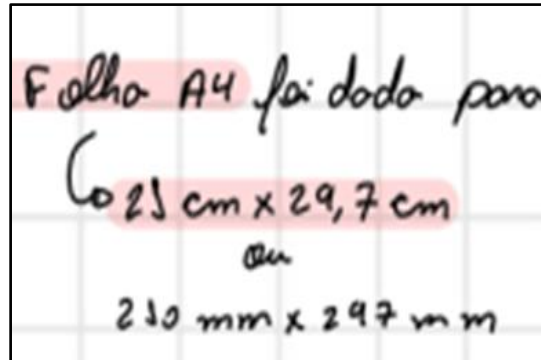 Folha A4 foi dada para
21 cm x 29,7 cm
ou
210 mm x 297 mm